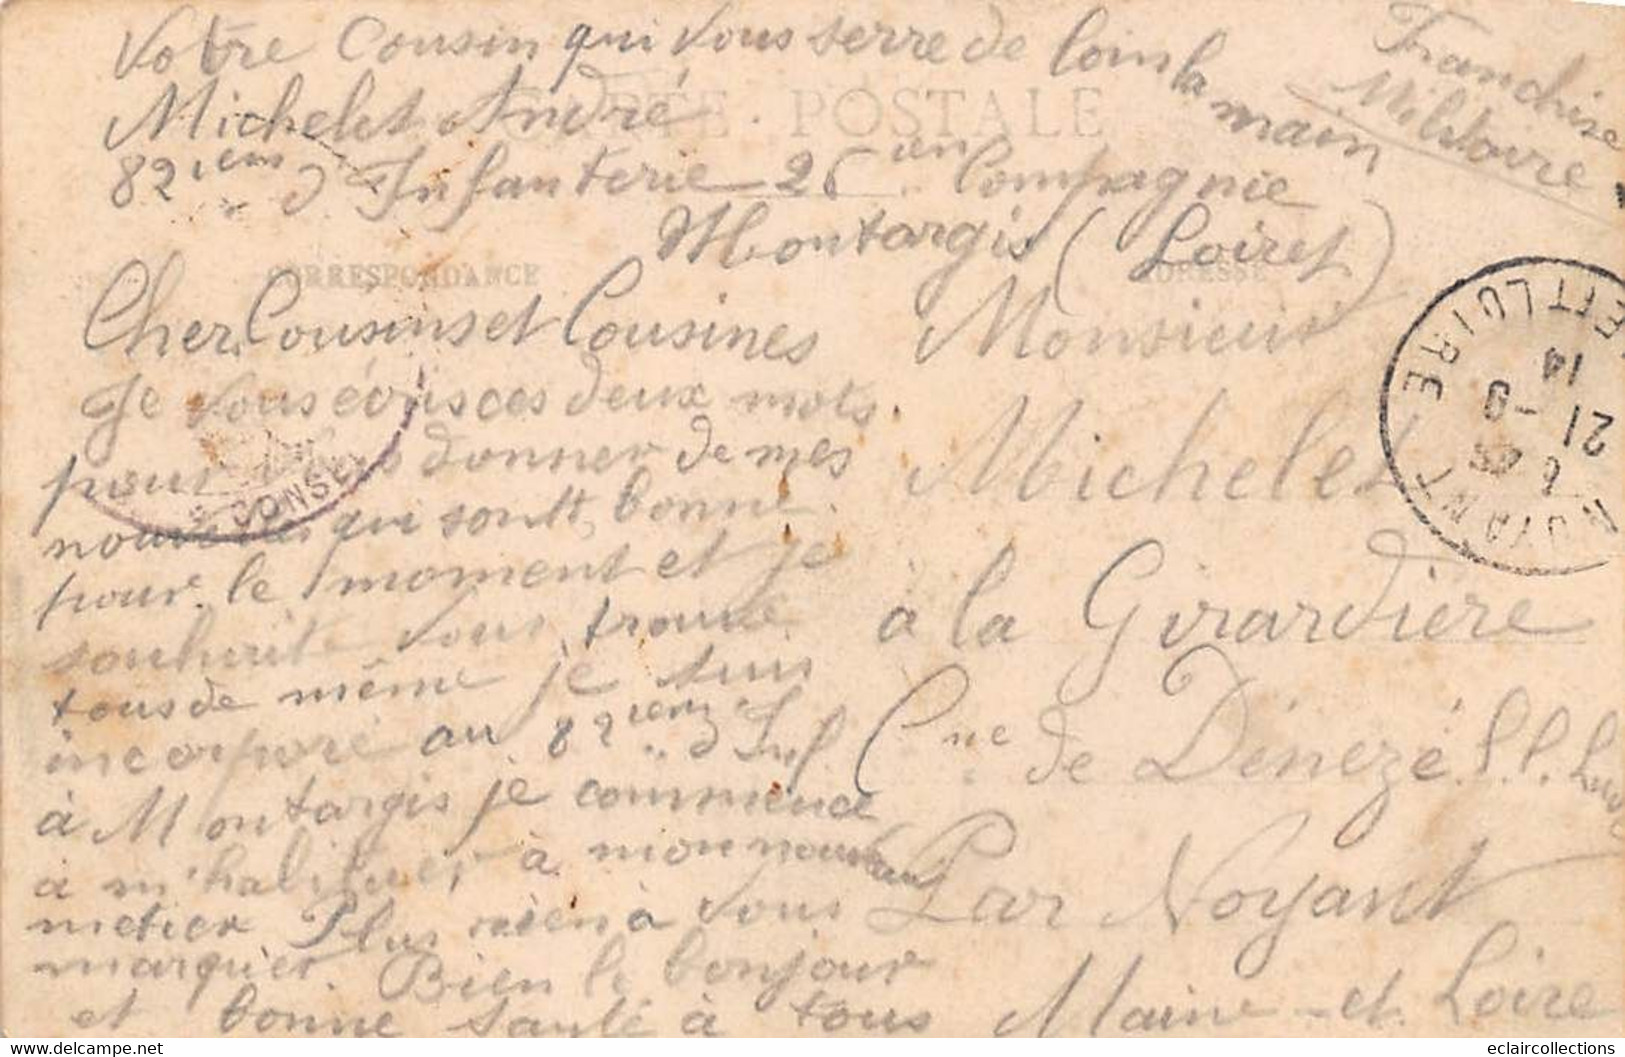 Votre Cousin qui vous serre de loin la main
Michelet André
82ième d'Infanterie 26 ièm Compagnie
Montargis (Loiret)
Franchise
Militaire
CARTE POSTALE
CORRESPONDANCE
ADRESSE
Cher Cousins et Cousines
Je vous écris ces deux mots
pour vous donner de mes
nouvelles qui sont bonne
pour le moment et je
souhaite vous trouve
tous de même je suis
incorporé au 82ièm d'Inf
à Montargis je commence
à m'habituer à mon nouveau
métier Plus rien à vous
marquer. Bien le bonjour
et bonne santé à tous
Monsieur
Michelet
à la Girardière
Cne de Dénezé s.s. Lude
Par Noyant
Maine-et-Loire
NOYANT
ET LOIRE
21 -9
14
CONSEI
eclaircollections